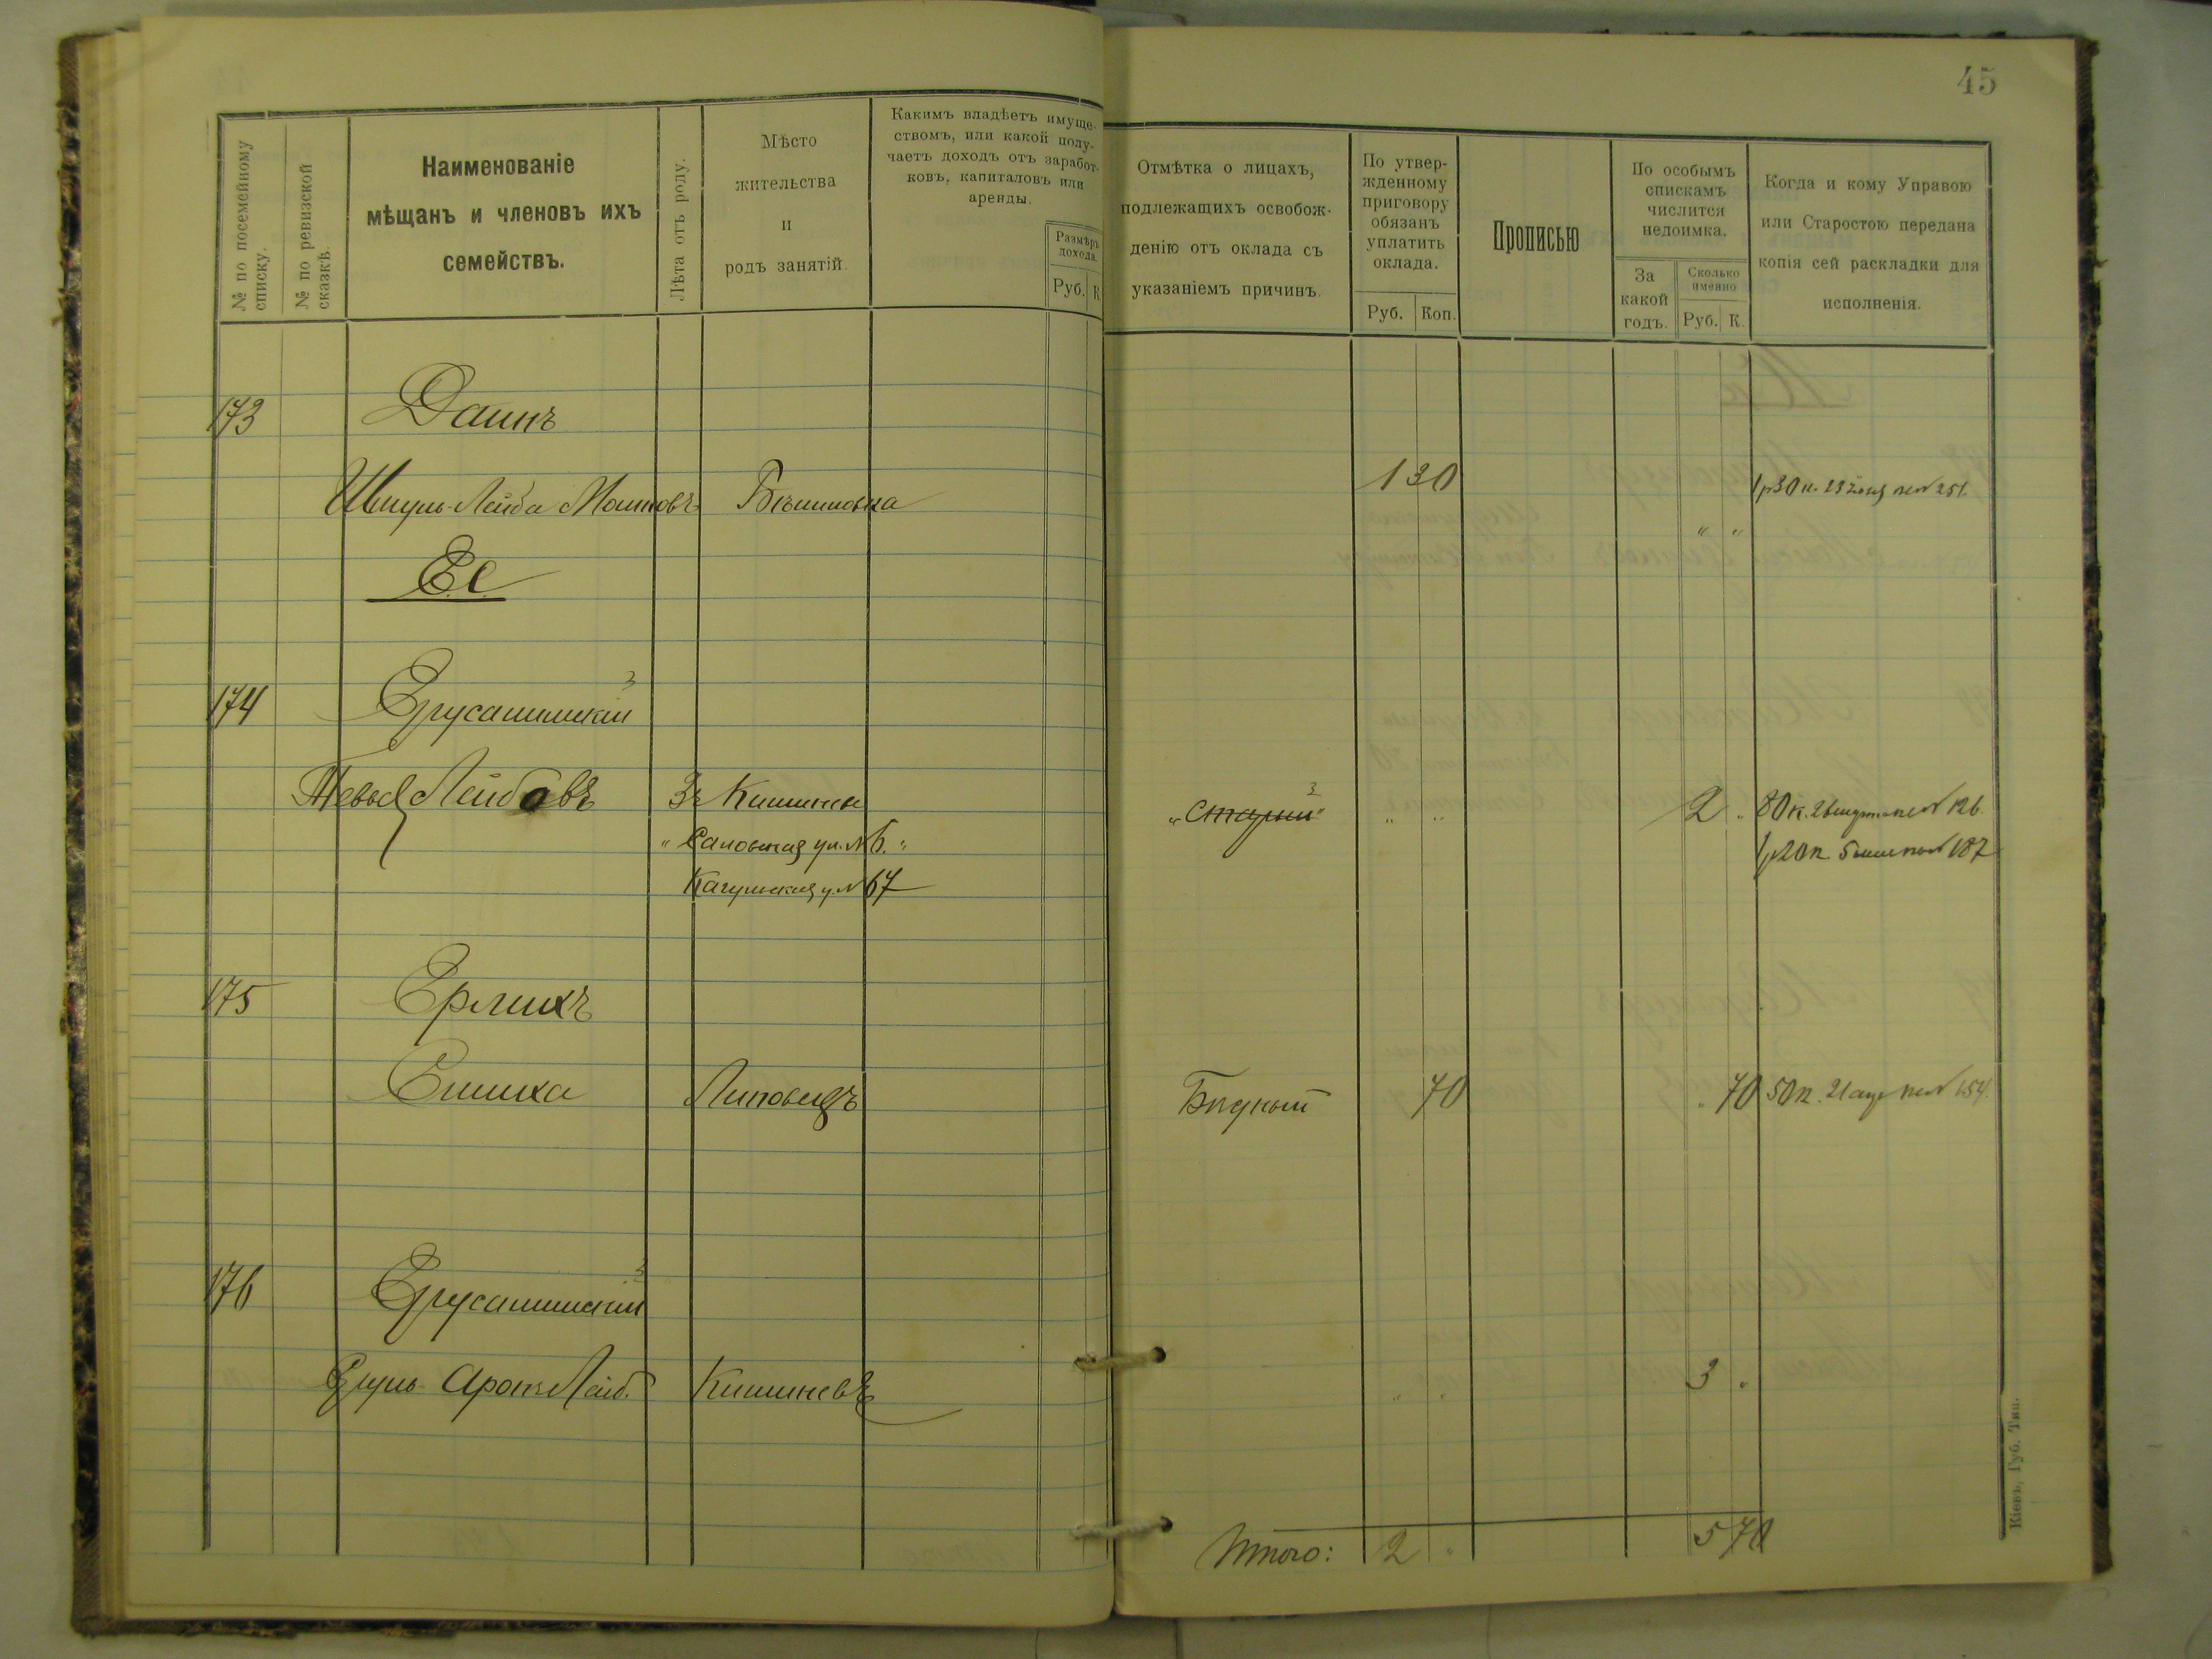 45
№ по посемейному списку.
№ по ревизской сказкѣ.
Наименованіе
мѣщанъ и членовъ ихъ
семействъ.
Лѣта отъ роду.
Мѣсто
жительства
и
родъ занятій.
Какимъ владѣетъ имуще-
ствомъ, или какой полу-
чаетъ доходъ отъ заработ-
ковъ, капиталовъ или
аренды.
Размѣръ
дохода.
Руб. К.
Отмѣтка о лицахъ,
подлежащихъ освобож-
денію отъ оклада съ
указаніемъ причинъ.
По утвер-
жденному
приговору
обязанъ
уплатить
оклада.
Руб. Коп.
Прописью
По особымъ
спискамъ
числится
недоимка.
За
какой
годъ.
Сколько
именно
Руб. К.
Когда и кому Управою
или Старостою передана
копія сей раскладки для
исполненія.
173 Даинъ
Шмуль-Лейба Мошковъ 1 30 1р30к. 23 № 251.
" "
Е.е.
174 Ерусалимскій 3
Тевье Лейбовъ Зъ Кишинев "Старый" 3 " " 2 " 80к. № 126.
ул. № 6. " 1р20к. 5 № 187
Кагульская у. № 67
175 Ерлихъ
Симха Липовецъ Бѣдный 70 " 70 50к. 21 апр № 154.
176 Ерусалимскій 3
Сруль Аронъ Лейб. Кишиневъ " " 3 "
Итого: 2 " 5 70
Кіевъ, Губ. Тип.